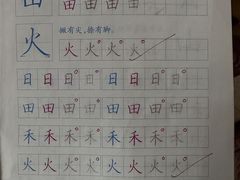 田 田 田 田 田
火
撇有尖,捺有脚。
火 火 火 火
日 日 日 日 日 日 日
田 田 田 田 田 田 田
禾 禾 禾 禾 禾 禾 禾
火 火 火 火 火 火 火